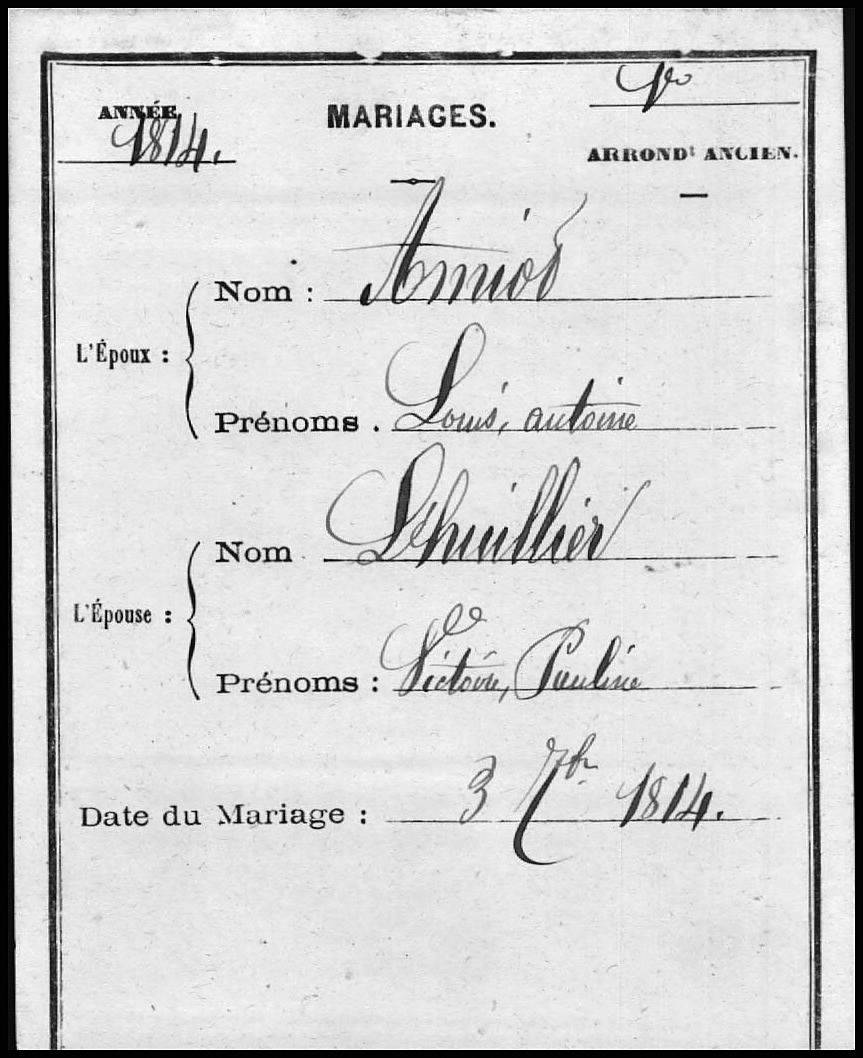 ANNÉE
MARIAGES.
Ve
1814.
ARRONDt ANCIEN.
L'Époux :
Nom : Amiot
Prénoms . Louis, antoine
L'Épouse :
Nom Lhuillier
Prénoms : Victoire, Pauline
Date du Mariage : 3 7br 1814.